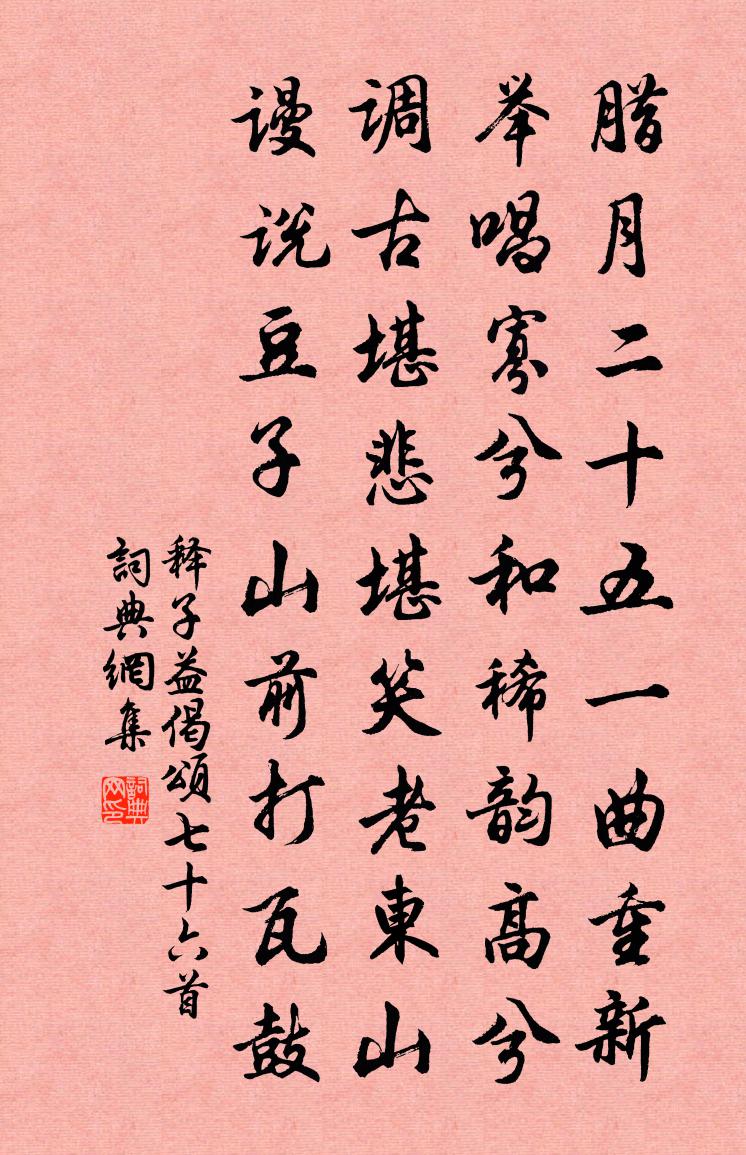 腊月二十五一曲重新
举唱寡兮和稀韵高兮
调古堪悲堪笑老東山
谩说豆子山前打瓦鼓
释子益偈頌七十六首
詞典網集
詞典网印